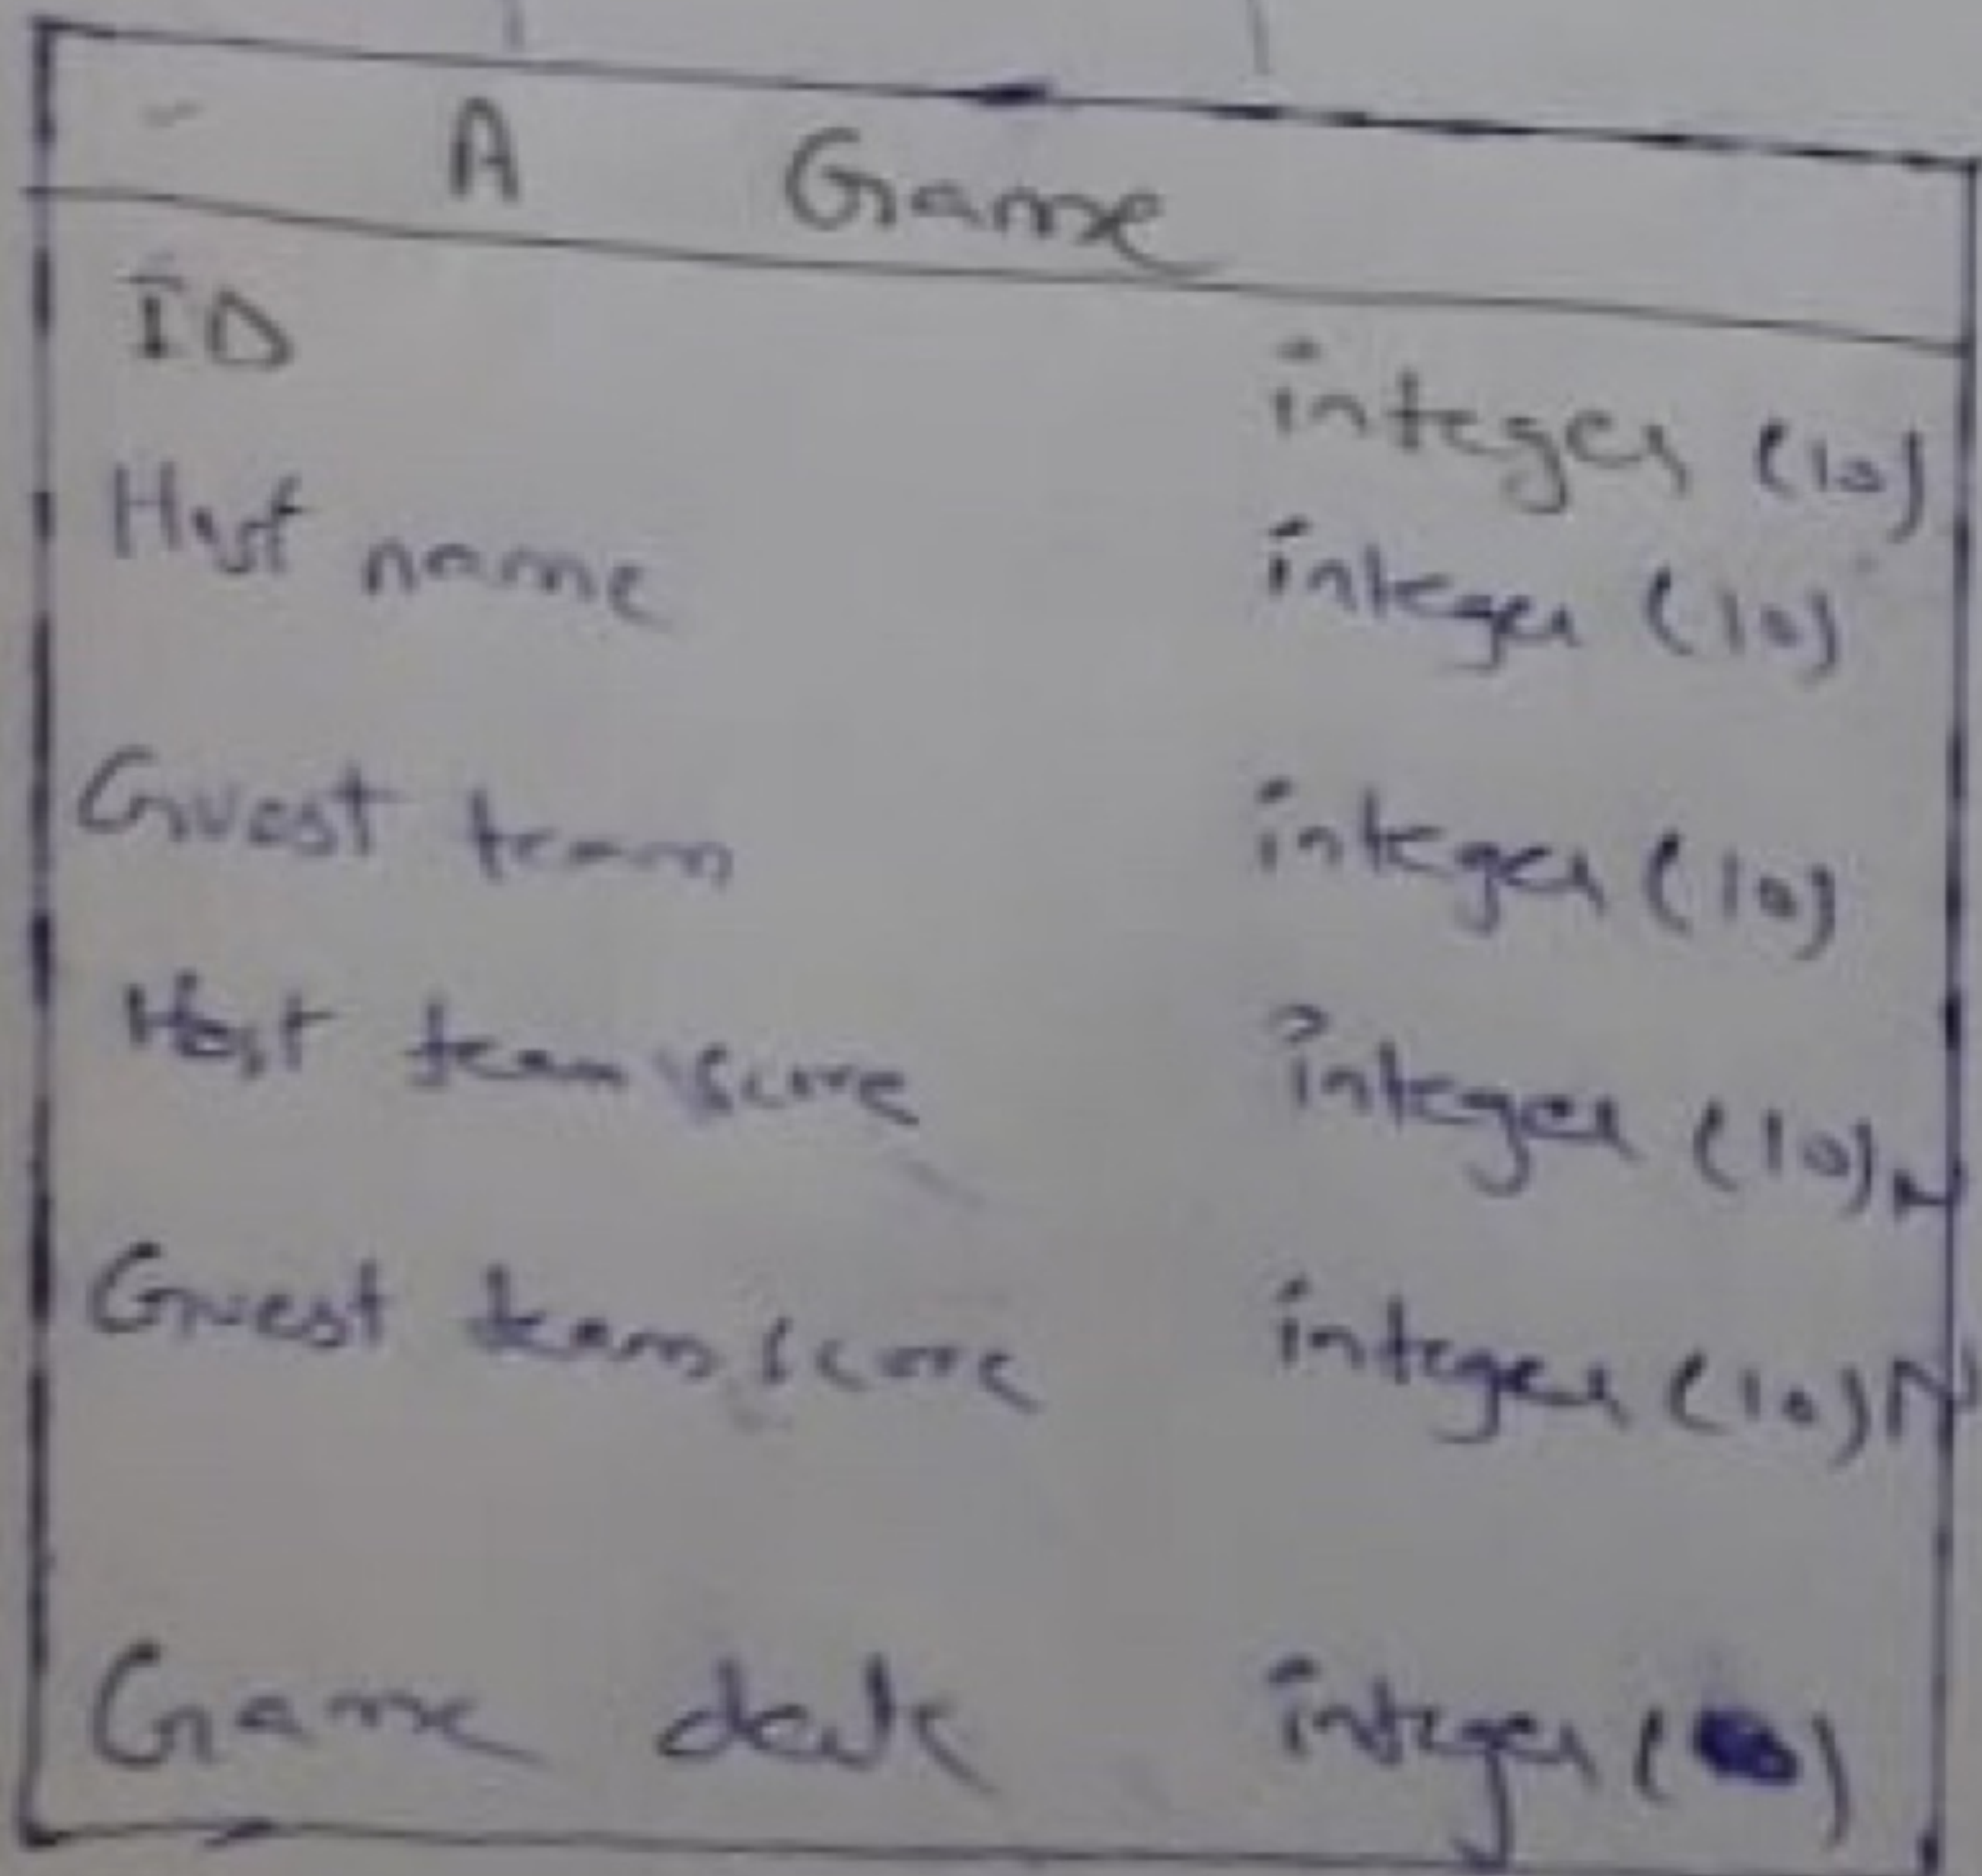 A Game
ID integer (10)
Host name integer (10)
Guest team integer (10)
Host team score integer (10) N
Guest team score integer (10) N
Game date integer ( )